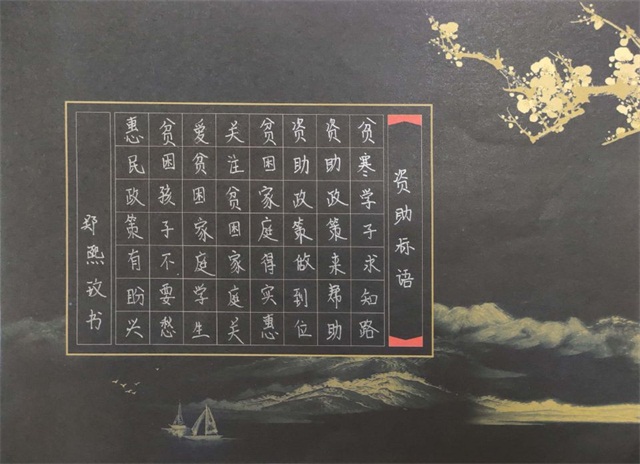 资助标语
贫寒学子求知路
资助政策来帮助
资助政策做到位
贫困家庭得实惠
关注贫困家庭关
爱贫困家庭学生
贫困孩子不要愁
惠民政策有盼兴
郑熙书